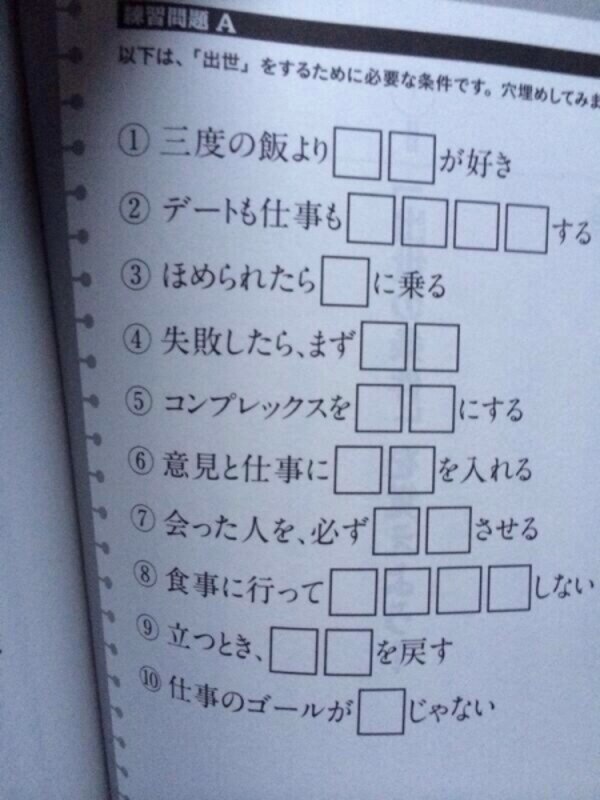 練習問題 A
以下は、「出世」をするために必要な条件です。穴埋めしてみま
① 三度の飯より□□が好き
② デートも仕事も□□□□する
③ ほめられたら□に乗る
④ 失敗したら、まず□□
⑤ コンプレックスを□□にする
⑥ 意見と仕事に□□を入れる
⑦ 会った人を、必ず□□させる
⑧ 食事に行って□□□□しない
⑨ 立つとき、□□を戻す
⑩ 仕事のゴールが□じゃない